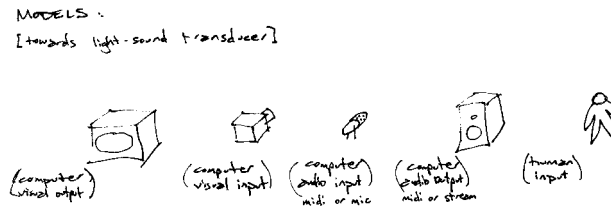 MODELS :
[towards light-sound transducer]
(computer visual output)
(computer visual input)
(computer audio input)
midi or mic
(computer audio output)
midi or stream
(human input)